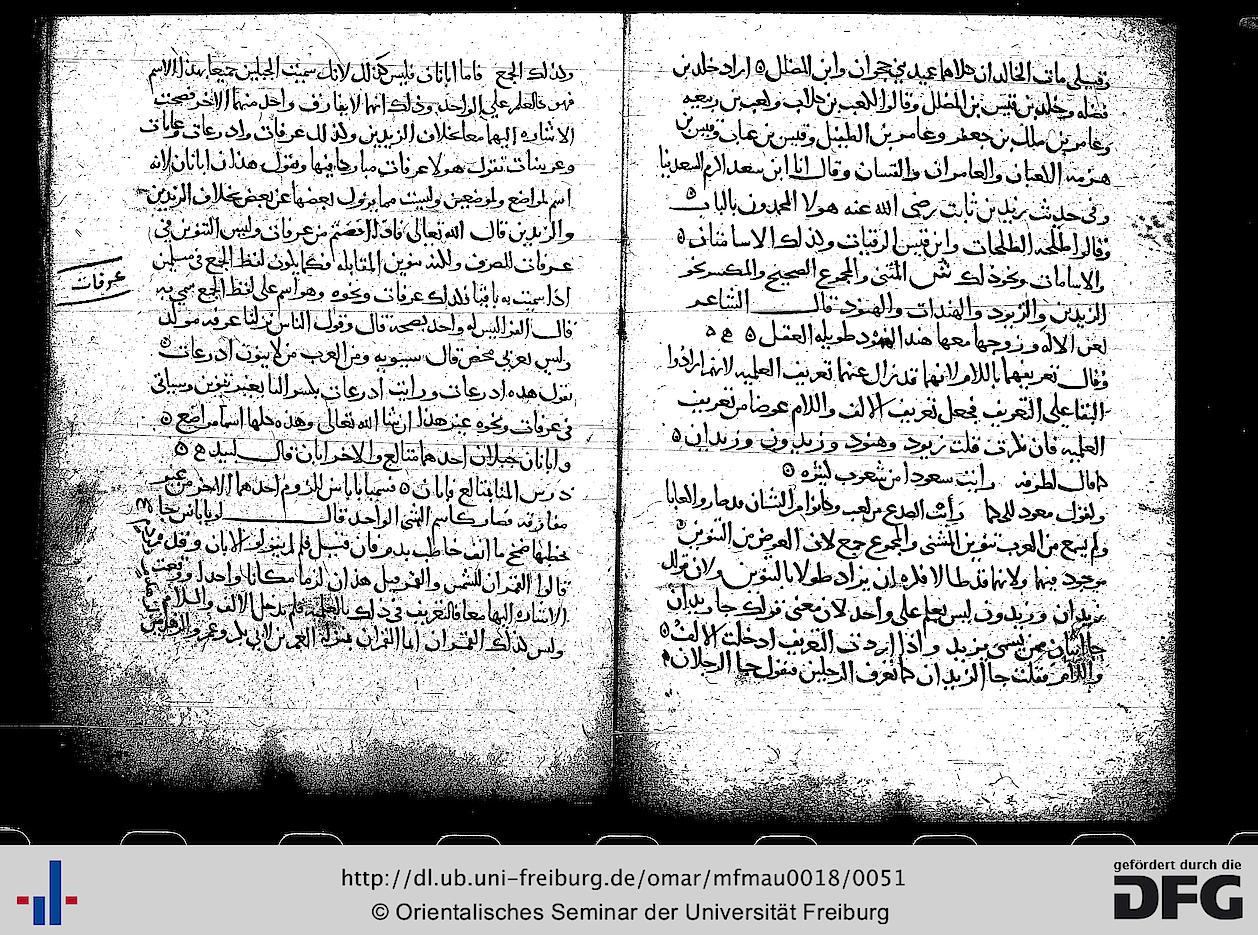 وقبلى مات الخالدان كلاهما عميد بني جحوان وابن المضلل اراد خلد بن
فضله وخلد بن قيس بن المضلل وقالوا لكعب بن كلاب وكعب بن ربيعه
وعامر بن ملك بن جعفر وعامر بن الطفيل وقيس بن عتاب وقيس بن
هزمه الكعبان والعامران والقيسان وقال انا ابن سعد اكرم السعدينا
وفى حديث زيد بن ثابت رضى الله عنه هولا المحمدون بالباب
وقالوا طلحه الطلحات وابن قيس الرقيات وكذلك الاسامتان
والاسامات ونحو ذلك المثنى والمجموع الصحيح والمكسر نحو
الزيدين والزيود والهندات والهنود قال الشاعر
لعن الاله وزوجها معها هند الهنود طويله الفعل
وقال تعريفهما باللام لانهما قد زال عنهما تعريف العلميه لانهم ارادوا
البقا على التعريف فجعل تعريف الالف واللام عوضا من تعريف
العلميه فان نكرت قلت زيود وهنود وزيدون وزيدان
كما قال طرفه رايت سعودا من شعوب كثيره
ولم يسمع من العرب تنوين المثنى والمجموع جمع لان الغرض من التنوين
موجود فيهما
زيدان وزيدون ليس بعلم على واحد لان معنى قولك جا زيدان
جا اثنان ممن يسمى بزيد واذا اردت التعريف ادخلت الالف
واللام فقلت جا الزيدان كما تعرف الرجلين فتقول جا الرجلان
وكذلك الجمع فاما ابانان فليس كذلك لانك سميت الجبلين جميعا بهذا الاسم
فهو كالعلم على الواحد وذلك انهما لا يفارق واحد منهما الاخر فصحت
الاشاره اليهما معا بخلاف الزيدين وكذلك عرفات واذرعات وعانات
وعريتنات تقول هولا عرفات مباركا فيها وتقول هذان ابانان لانه
اسم لمواضع ولموضعين وليست مما يزول بعضها عن بعض بخلاف الزيدين
والزيدين قال الله تعالى فاذا افضتم من عرفات وليس التنوين فى
عرفات للصرف ولكنه تنوين المقابله وكما يكون لفظ الجمع فى مسلمين
اذا سميت به باقيا فكذلك عرفات ونحوه وهو اسم على لفظ الجمع سمى به
عرفات
قال الفرا ليس له واحد بصحه قال وقول الناس نزلنا عرفه مولد
وليس بعربى محض قال سيبويه ومن العرب من لا ينون اذرعات
يقول هذه اذرعات ورايت اذرعات بكسر التا بغير تنوين وسياتى
فى عرفات ونحوه غير هذا ان شا الله تعالى وهذه كلها اسما مواضع
وابانان جبلان احدهما متالع والاخر ابان قال لبيد
درس المنا بمتالع فابان فسميا باباين للزوم احدهما الاخر من غير
مفارقه فصار كاسم الشى الواحد قال لو بابانين جا
يخطبها ضرج ما انف خاطب بدم فان قيل فلم لم يقولوا الابانان وقد
قالوا القمران للشمس والقمر قيل هذان لزما مكانا واحدا ووقعت
الاشاره اليهما معا فالتعريف فى ذلك بالعلميه فلم يدخل الالف واللام
وليس كذلك القمران انما القمران بمنزله العمرين ابى بكر وعمر
http://dl.ub.uni-freiburg.de/omar/mfmau0018/0051
© Orientalisches Seminar der Universität Freiburg
gefördert durch die
DFG